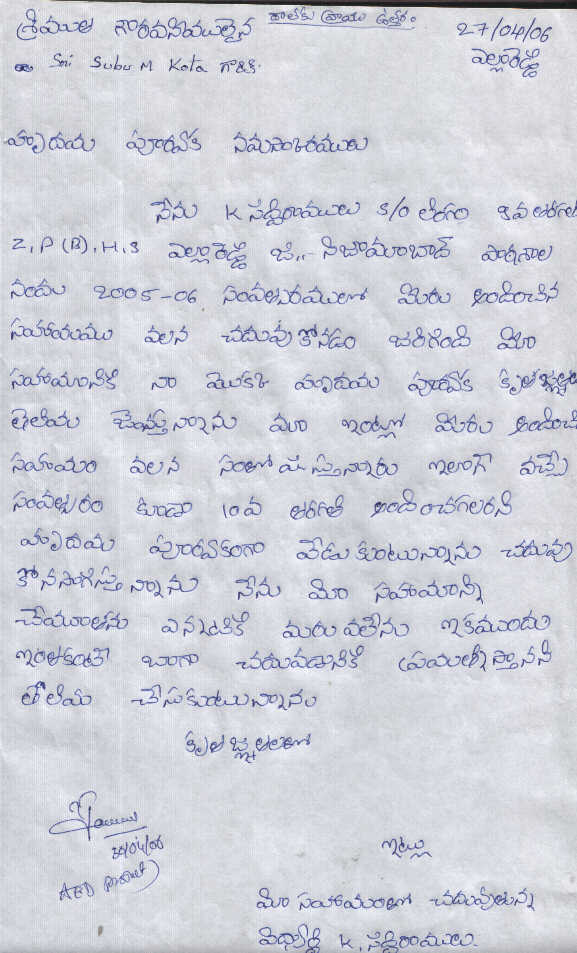 దాతకు వ్రాయు ఉత్తరం
శ్రీయుత గౌరవనీయులైన
27/04/06
Sri Subu M Kota గారికి.
ఎల్లారెడ్డి
హృదయ పూర్వక నమస్కారములు
నేను K సద్దిరాములు S/o లింగం 9వ తరగతి
Z, P (B), H, S ఎల్లారెడ్డి జి,,- నిజామాబాద్ పాఠశాల
నందు 2005-06 సంవత్సరములో మీరు అందించిన
సహాయము వలన చదువుకోనడం జరిగింది మీ
సహాయానికి నా యొక్క హృదయ పూర్వక కృతజ్ఞతలు
తెలియ చేస్తున్నాను మా ఇంట్లో మీరు అందించిన
సహాయం వలన సంతోషిస్తున్నారు ఇలాగే వచ్చే
సంవత్సరం కూడా 10వ తరగతి అందించగలరని
హృదయ పూర్వకంగా వేడుకుంటున్నాను చదువు
కోనసాగిస్తున్నాను నేను మీ సహాయాన్ని
చేయూతను ఎన్నటికి మరువలేను ఇకముందు
ఇంతకంటే బాగా చదువడానికి ప్రయత్నిస్తానని
తేలియ చేసుకుంటున్నాను
కృతజ్ఞతలతో
30/04/06
AED
ఇట్లు
మీ సహాయంతో చదువుతున్న
విద్యార్థి K, సద్దిరాములు.